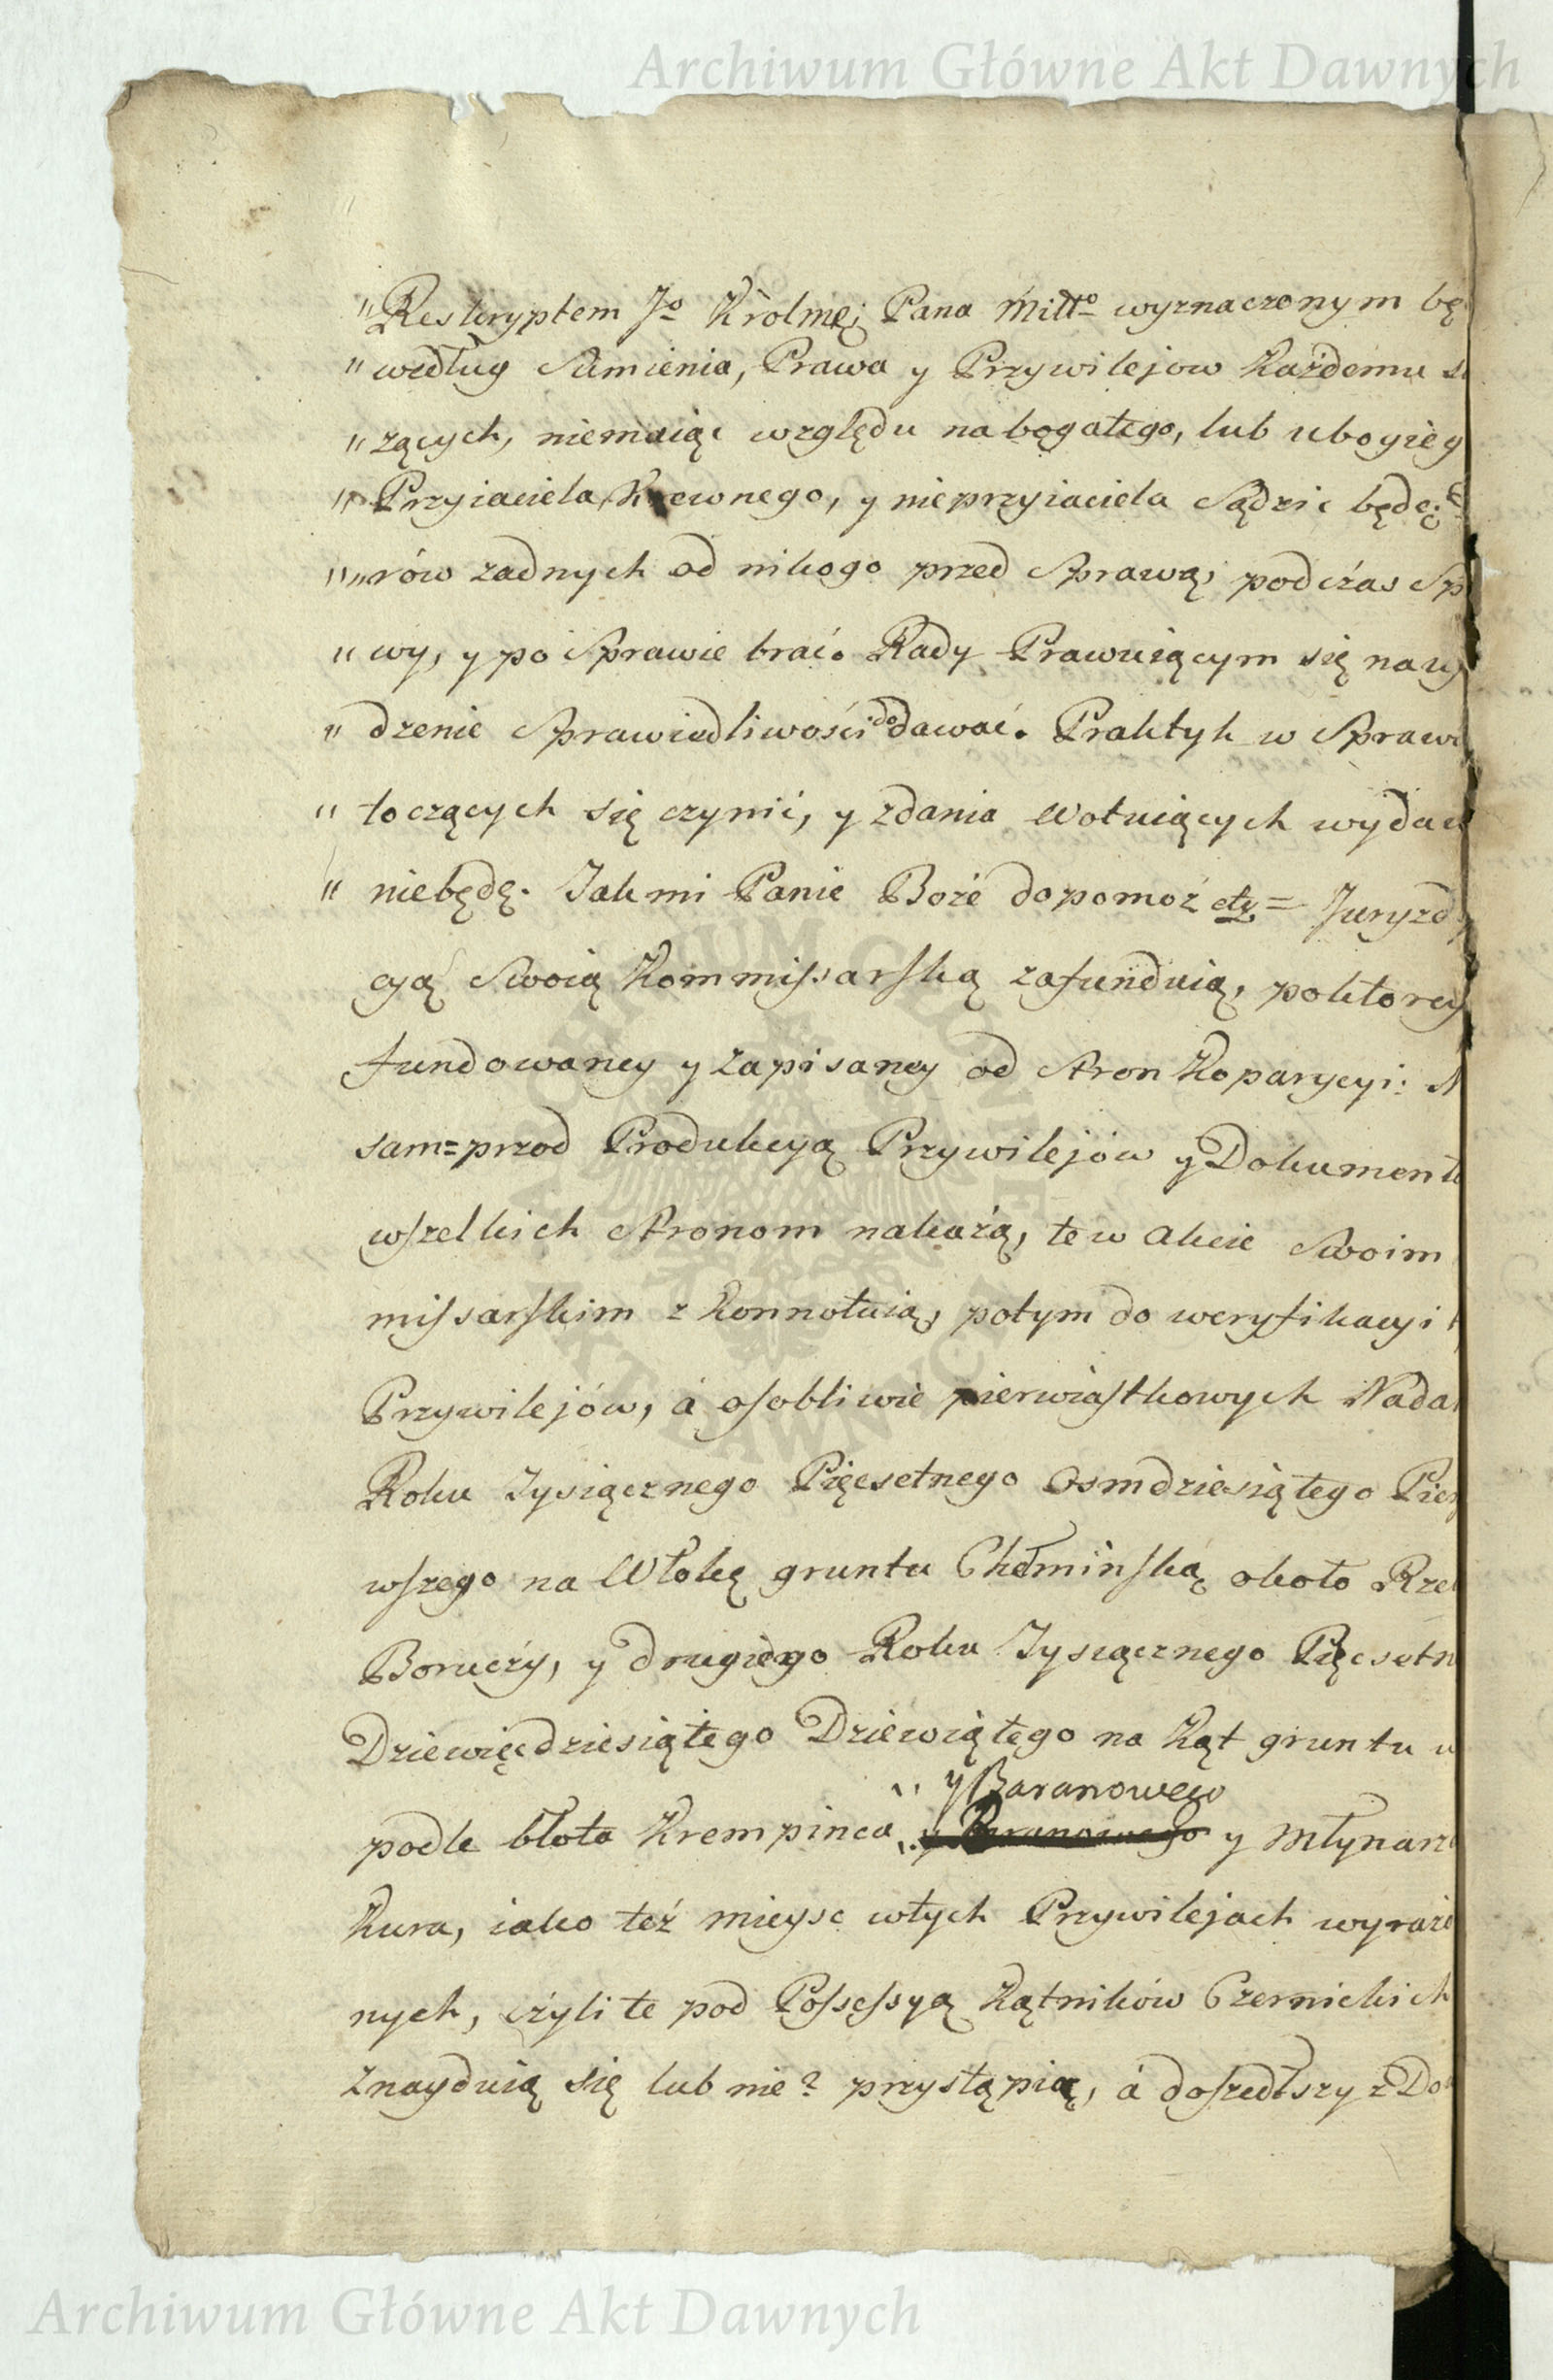 Archiwum Główne Akt Dawnych
"Reskryptem Jo Krolmęj Pana Miłło wyznaczonym bę
"według Sumienia, Prawa y Przywilejow Każdemu
"zących, niemaiąc względu na bogatego, lub ubogieg
"Przyiaciela, Krewnego, y nieprzyiaciela Sądzić będę;
""rów żadnych od nikogo przed Sprawą, podczas Sp
"wy, y po Sprawie brać. Rady Prawuiącym się na
"dzenie Sprawiedliwości do dawać. Praktyk w Spraw
"toczących się czynić, y zdania Wotuiących wydaw
"niebędę. Jak mi Panie Boże dopomoż etc = Juryzd
cyą Swoią Kommissarską zafunduią, po ktorey
fundowaney y zapisaney od Stron Koparycyi: N
sam=przod Produkcyą Przywilejów y Dokument
wszelkich Stronom nakażą, te w Akcie Swoim
missarskim z Konnotuią, potym do weryfikacyi
Przywilejów, á osobliwie pierwiastkowych Nada
Roku Tysiącznego Pięcsetnego Osmdziesiątego Pier
wszego na Włokę gruntu Chełminską około Rze
Boruczy, y drugiego Roku Tysiącznego Pięcsetn
Dziewięcdziesiątego Dziewiątego na Kąt gruntu
y Baranowego
podle błota Krempinca y Baranowego y Młynarz
Kura, iako też mieysc w tych Przywilejach wyraże
nych, czyli te pod Possessyą Kątników Czernickich
znayduią się lub nie? przystąpią, á doszedłszy z Do
ARCHIWUM GŁÓWNE
AKT DAWNYCH
Archiwum Główne Akt Dawnych